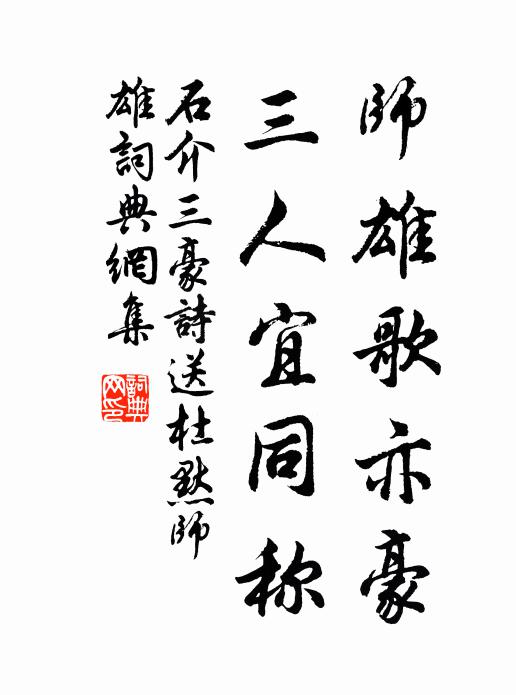 師雄歌亦豪
三人宜同称
石介三豪詩送杜默師
雄詞典網集
詞典
网印